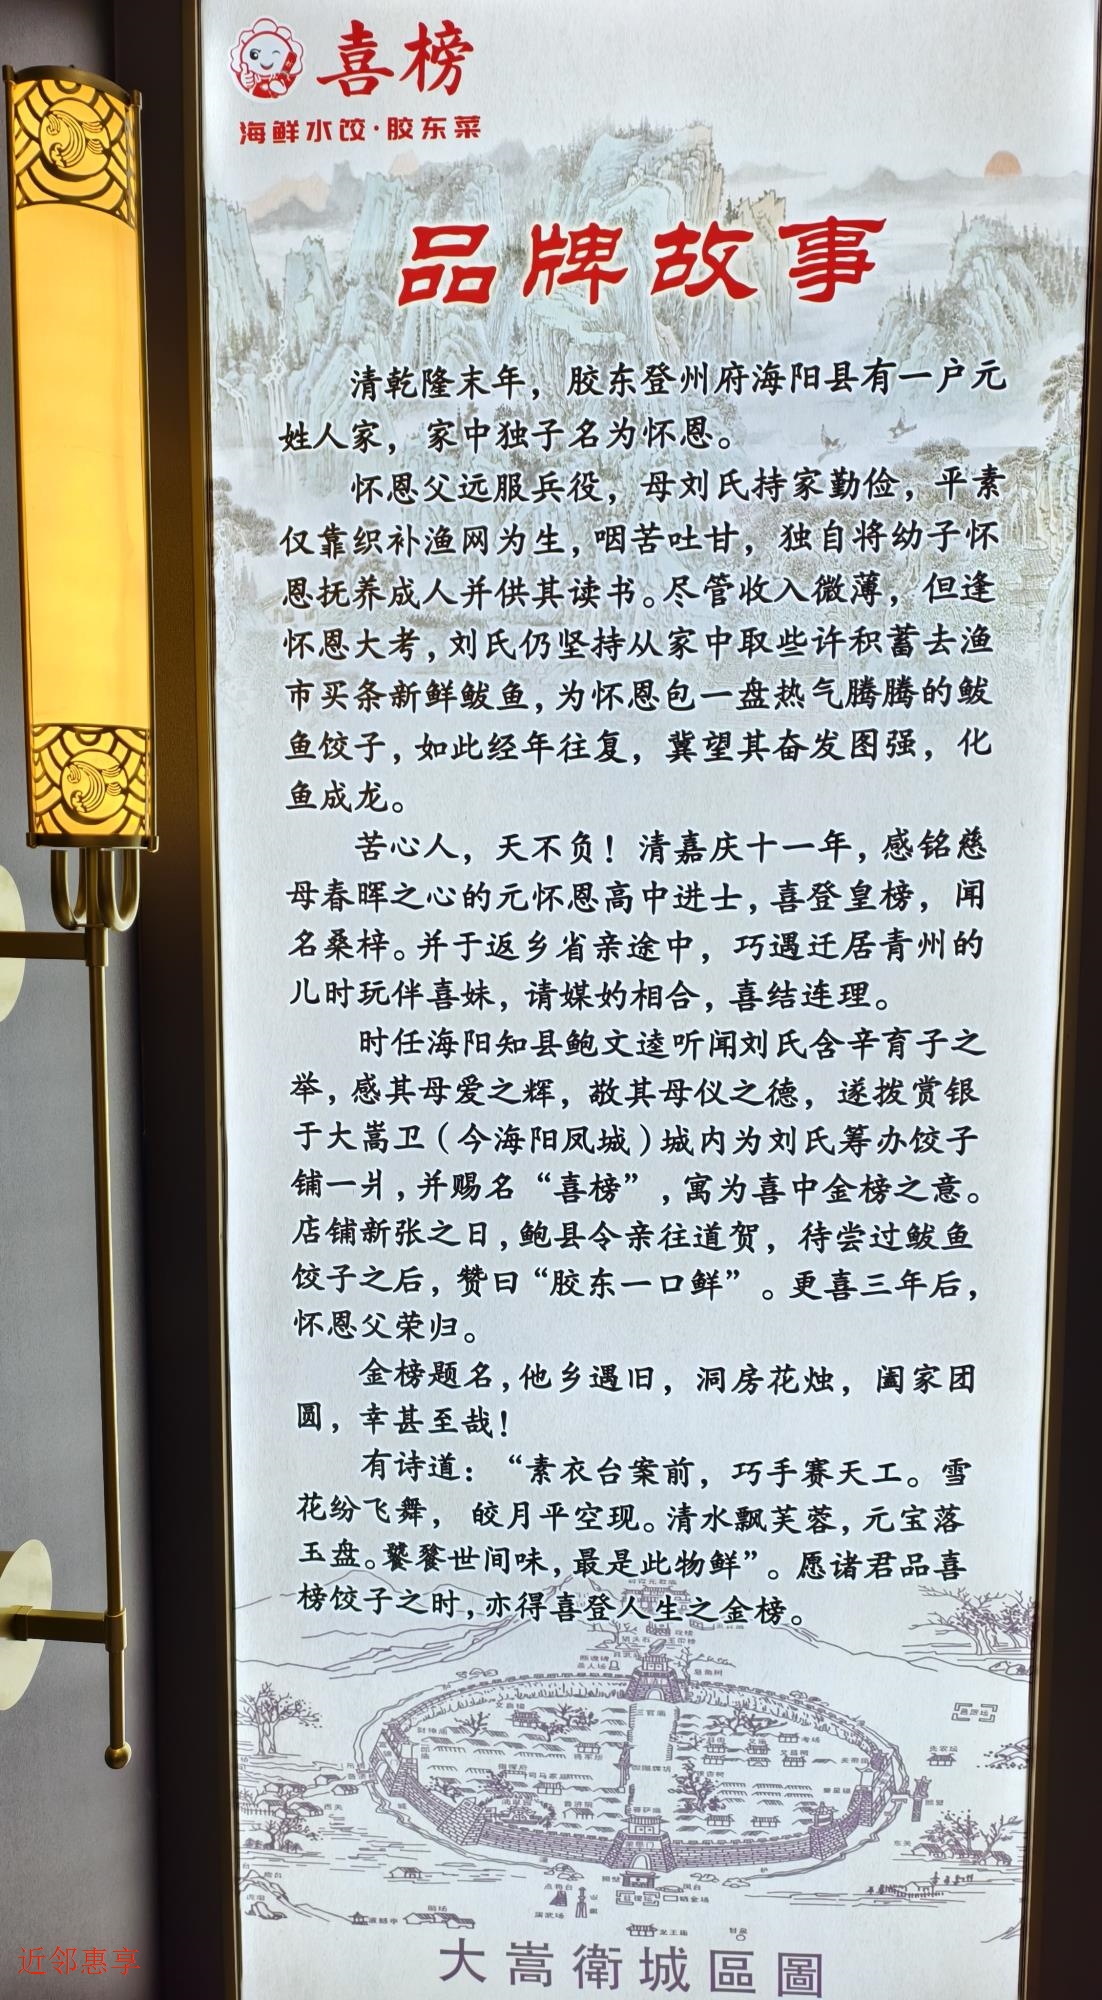 喜榜
海鲜水饺·胶东菜
品牌故事
清乾隆末年，胶东登州府海阳县有一户元
姓人家，家中独子名为怀恩。
怀恩父远服兵役，母刘氏持家勤俭，平素
仅靠织补渔网为生，咽苦吐甘，独自将幼子怀
恩抚养成人并供其读书。尽管收入微薄，但逢
怀恩大考，刘氏仍坚持从家中取些许积蓄去渔
市买条新鲜鲅鱼，为怀恩包一盘热气腾腾的鲅
鱼饺子，如此经年往复，冀望其奋发图强，化
鱼成龙。
苦心人，天不负！清嘉庆十一年，感铭慈
母春晖之心的元怀恩高中进士，喜登皇榜，闻
名桑梓。并于返乡省亲途中，巧遇迁居青州的
儿时玩伴喜妹，请媒妁相合，喜结连理。
时任海阳知县鲍文逵听闻刘氏含辛育子之
举，感其母爱之辉，敬其母仪之德，遂拨赏银
于大嵩卫（今海阳凤城）城内为刘氏筹办饺子
铺一爿，并赐名“喜榜”，寓为喜中金榜之意。
店铺新张之日，鲍县令亲往道贺，待尝过鲅鱼
饺子之后，赞曰“胶东一口鲜”。更喜三年后，
怀恩父荣归。
金榜题名，他乡遇旧，洞房花烛，阖家团
圆，幸甚至哉！
有诗道：“素衣台案前，巧手赛天工。雪
花纷飞舞，皎月平空现。清水飘芙蓉，元宝落
玉盘。饕餮世间味，最是此物鲜”。愿诸君品喜
榜饺子之时，亦得喜登人生之金榜。
三官庙
大嵩衛城區圖
近邻惠享